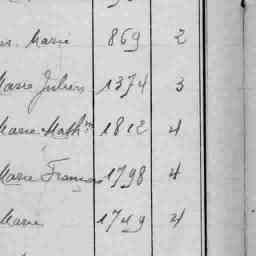 Marie 869 2
Marie Julien 1374 3
Marie Math^n 1812 4
Marie François 1798 4
Marie 1749 4